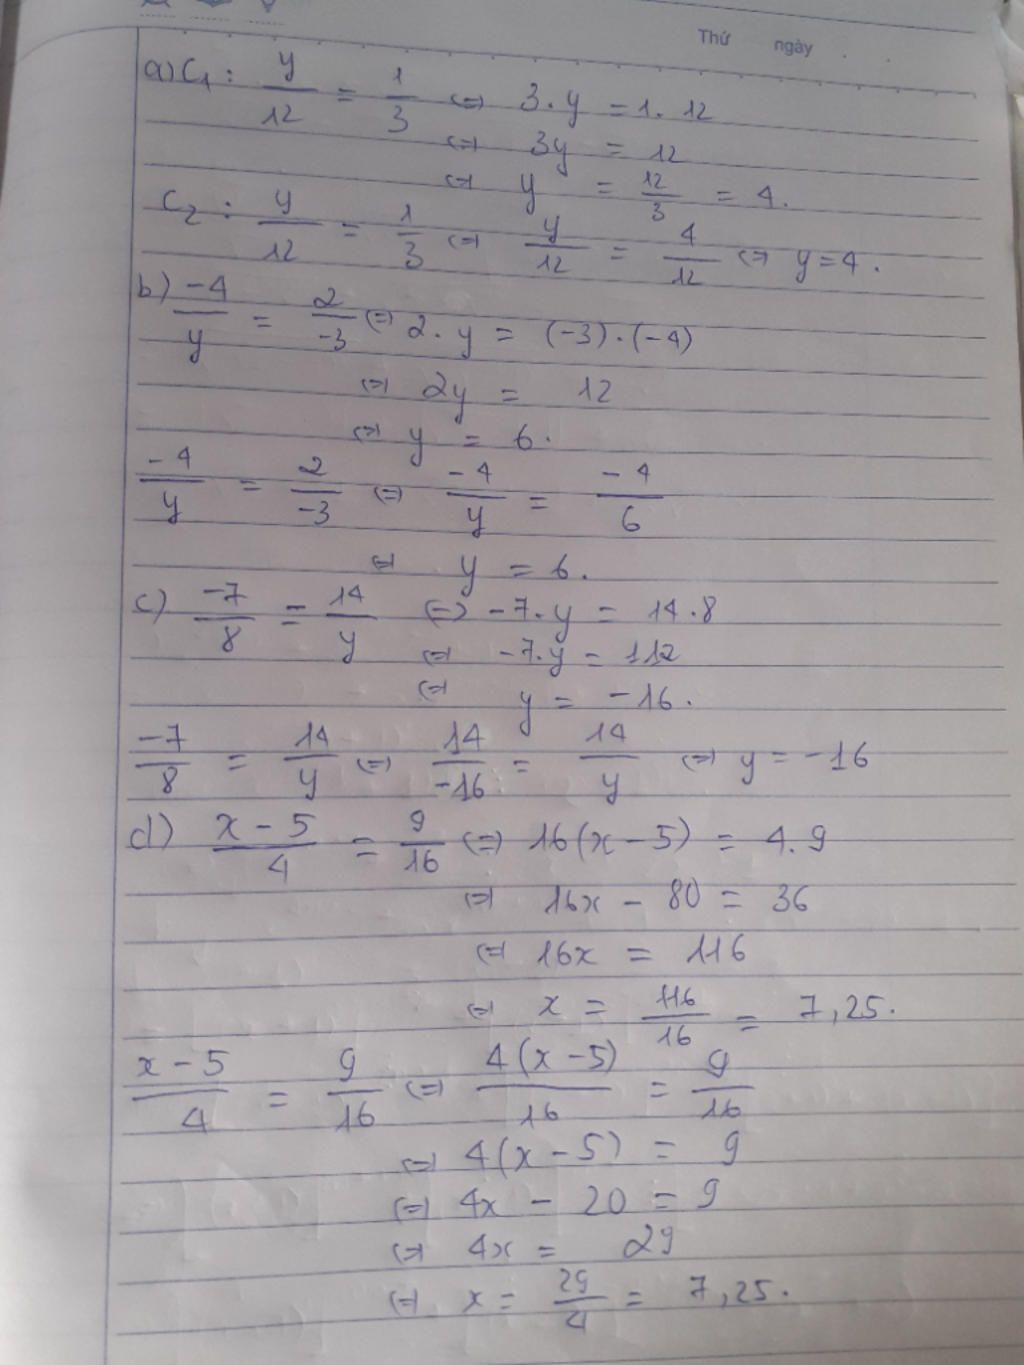 Thứ ngày
a) C₁ : y/12 = 1/3 ⇔ 3.y = 1.12
⇔ 3y = 12
⇔ y = 12/3 = 4.
C₂ : y/12 = 1/3 ⇔ y/12 = 4/12 ⇔ y = 4.
b) -4/y = 2/-3 ⇔ 2.y = (-3).(-4)
⇔ 2y = 12
⇔ y = 6.
-4/y = 2/-3 ⇔ -4/y = -4/6
⇔ y = 6.
c) -7/8 = 14/y ⇔ -7.y = 14.8
⇔ -7.y = 112
⇔ y = -16.
-7/8 = 14/y ⇔ 14/-16 = 14/y ⇔ y = -16
d) x-5/4 = 9/16 ⇔ 16(x-5) = 4.9
⇔ 16x - 80 = 36
⇔ 16x = 116
⇔ x = 116/16 = 7,25.
x-5/4 = 9/16 ⇔ 4(x-5)/16 = 9/16
⇔ 4(x-5) = 9
⇔ 4x - 20 = 9
⇔ 4x = 29
⇔ x = 29/4 = 7,25.